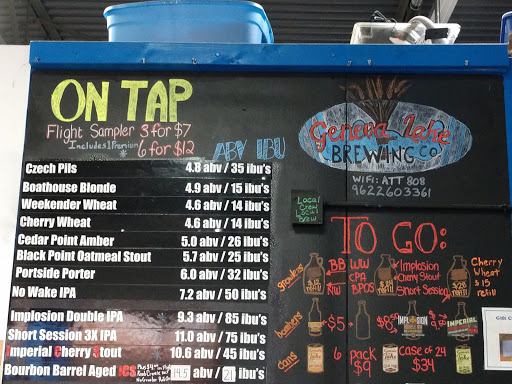 ON TAP
Flight Sampler 3 for $7
Includes 1 Premium* 6 for $12
ABV IBU
Czech Pils 4.8 abv / 35 ibu's
Boathouse Blonde 4.9 abv / 15 ibu's
Weekender Wheat 4.6 abv / 14 ibu's
Cherry Wheat 4.6 abv / 14 ibu's
Cedar Point Amber 5.0 abv / 26 ibu's
Black Point Oatmeal Stout 5.7 abv / 25 ibu's
Portside Porter 6.0 abv / 32 ibu's
No Wake IPA 7.2 abv / 50 ibu's
Implosion Double IPA 9.3 abv / 85 ibu's
Short Session 3X IPA 11.0 abv / 75 ibu's
Imperial Cherry Stout 10.6 abv / 45 ibu's
Bourbon Barrel Aged ICS 14.5 abv / 21 ibu's
Geneva Lake
BREWING CO
WiFi: ATT 808
9622603361
Local
Crew
Local
Brew
TO GO:
growlers
BB WW
CPA
RIW BPOS
Implosion
Cherry Stout
Short Session
Cherry
Wheat
$15
refill
bombers
$5
IMPLOSION
IMPERIAL
cans
6
pack
$9
case of 24
$34